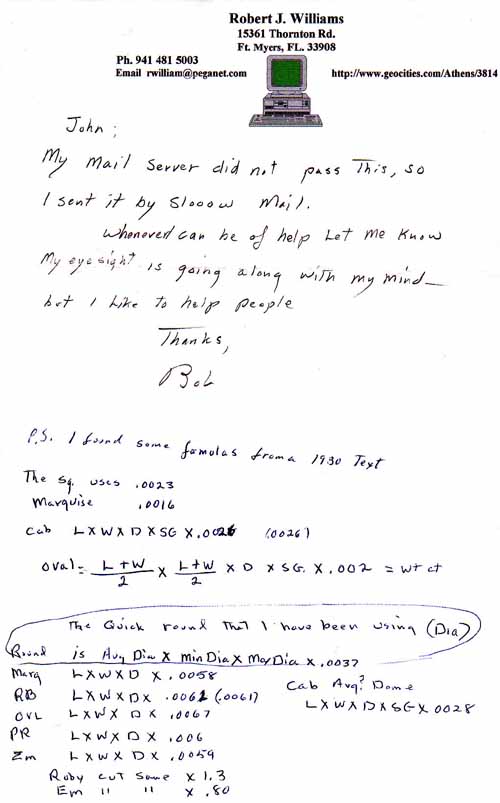 Robert J. Williams
15361 Thornton Rd.
Ft. Myers, FL. 33908
Ph. 941 481 5003
Email rwilliam@peganet.com
http://www.geocities.com/Athens/3814
John;
My Mail Server did not pass This, so
I sent it by Slooow Mail.
Whenever I can be of help Let Me Know
My eyesight is going along with my mind—
but I Like to help people
Thanks,
Bob
P.S. I found some famulas from a 1930 Text
The Sq. uses .0023
Marquise .0016
Cab L X W X D X SG X .0026 (.0026)
Oval = L+W/2 X L+W/2 X D X SG. X .002 = wt ct
The Quick round That I have been using (Dia)
Round is Avg Dia X min Dia X Max Dia X .0037
Marq L X W X D X .0058
RB L X W X D X .0061 (.0061)
OVL L X W X D X .0067
PR L X W X D X .006
Em L X W X D X .0059
Cab Avg? Dome
L X W X D X SG X 0028
Ruby cut Same X 1.3
Em " " X .80